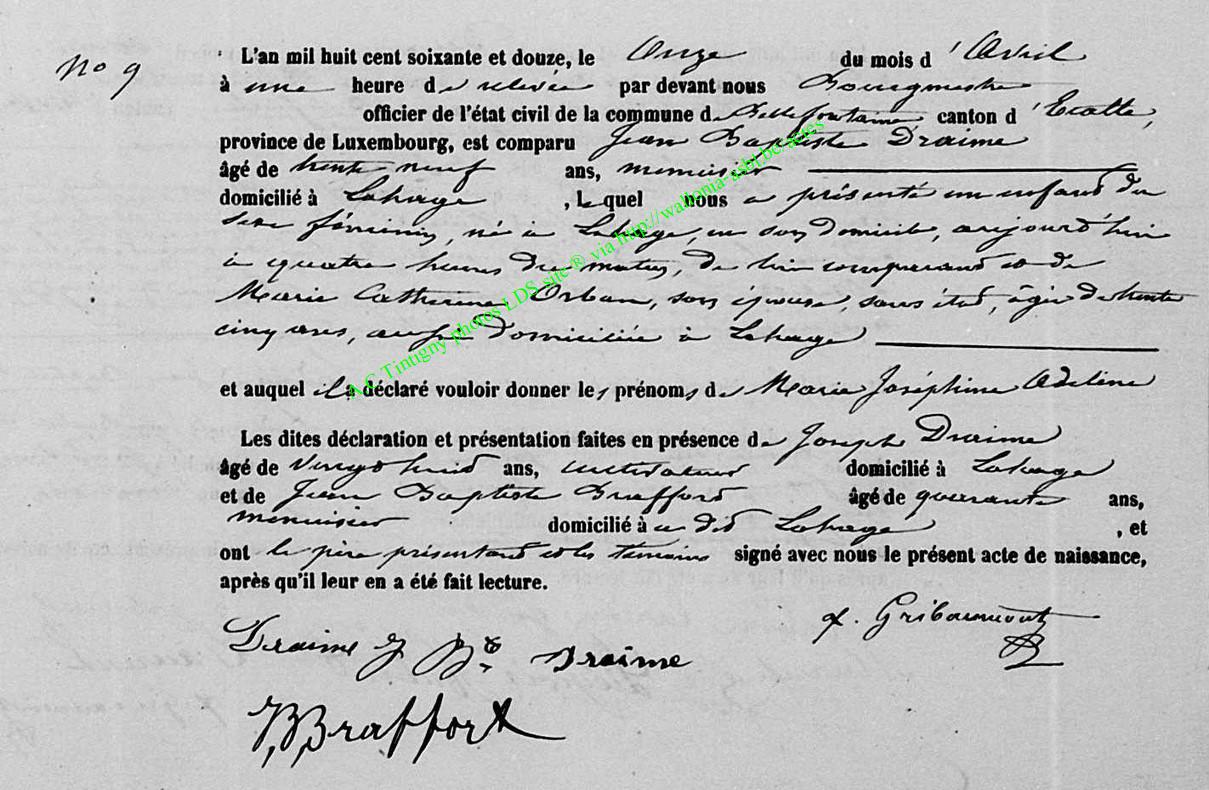 No 9
L'an mil huit cent soixante et douze, le Onze du mois d'Avril
à une heure de relevée par devant nous Bourgmestre
officier de l'état civil de la commune de Bellefontaine canton d'Etalle,
province de Luxembourg, est comparu Jean Baptiste Draime
âgé de trente neuf ans, menuisier
domicilié à Lahage, Lequel nous a présenté un enfant du
sexe féminin, né à Lahage, en son domicile, aujourd'hui
à quatre heures du matin, de lui comparant et de
Marie Catherine Orban, son épouse, sans état, âgée de trente
cinq ans, aussi domiciliée à Lahage
et auquel il a déclaré vouloir donner les prénoms de Marie Joséphine Adeline
Les dites déclaration et présentation faites en présence de Joseph Draime
âgé de vingt huit ans, cultivateur domicilié à Lahage
et de Jean Baptiste Braffort âgé de quarante ans,
menuisier domicilié à a dit Lahage, et
ont le père présentant et les témoins signé avec nous le présent acte de naissance,
après qu'il leur en a été fait lecture.
Gribaumont
Draime J Bte Draime
JB Braffort
A.C Tintigny photos LDS site ® via http://wallonia-asbl.be/actes